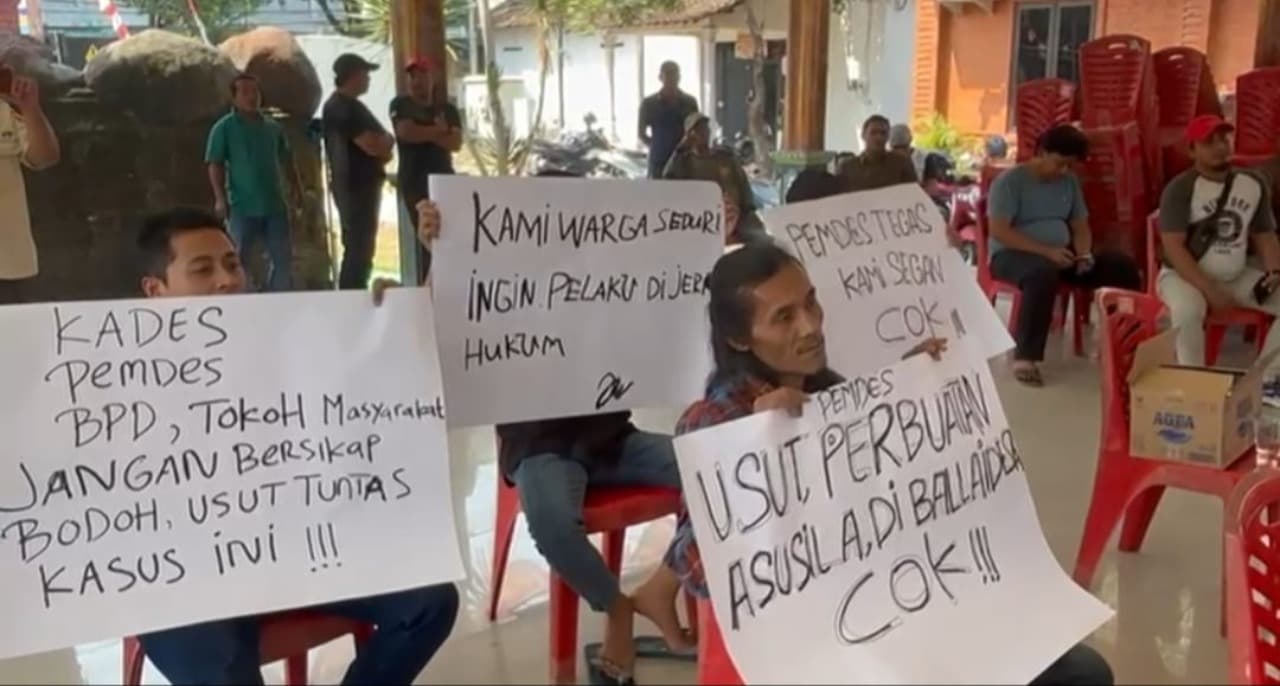 KADES
PEMDES
BPD, TOKOH Masyarakat
JANGAN BERSIKAP
BODOH, USUT TUNTAS
KASUS iNi !!!
KAMI WARGA SEDURI
INGIN PELAKU DI JERA
HUKUM
PEMDES TEGAS
KAMI SEGAN
COK !!!
PEMDES
USUT, PERBUATAN
ASUSILA, DI BALLAI DESA
COK !!!
AQBA